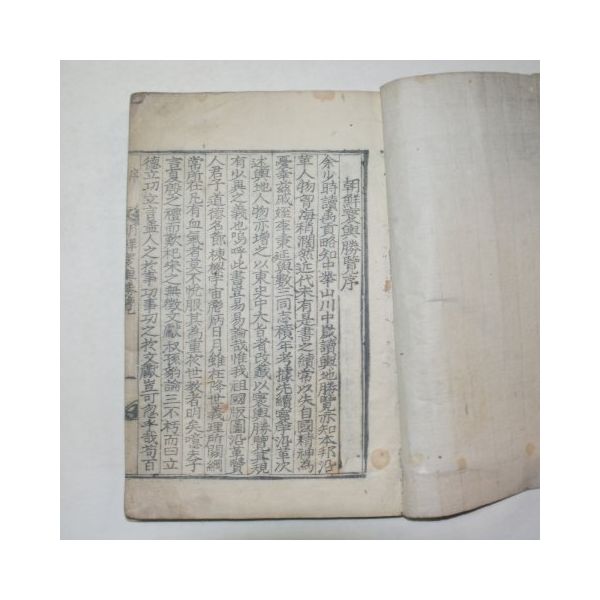 朝鮮寰輿勝覽序
余少時讀禹貢略知中華山川中歲讀輿地勝覽亦知本邦沿
革人物而海稍濶然近代未有是書之續常以失自國精神爲
憂李茲戚姪李秉延與數三同志積年考據先續寰學沿革次
述輿地人物亦增之以東史中大旨者改裁以寰輿勝覽其規
有少異之義也嗚呼此書豈易易論哉惟我祖國版圖沿革賢
人君子道德名節棟樑宇宙炳日月雖在降世義理所關綱
常所在凡有血氣者莫不悅服其爲重於世敎者明矣噫夫子
言夏殷之禮而歎杞宋之無徵文獻叔孫豹論三不朽而曰立
德立功立言盖人之於事功事功之於文獻豈可忽乎哉苟百